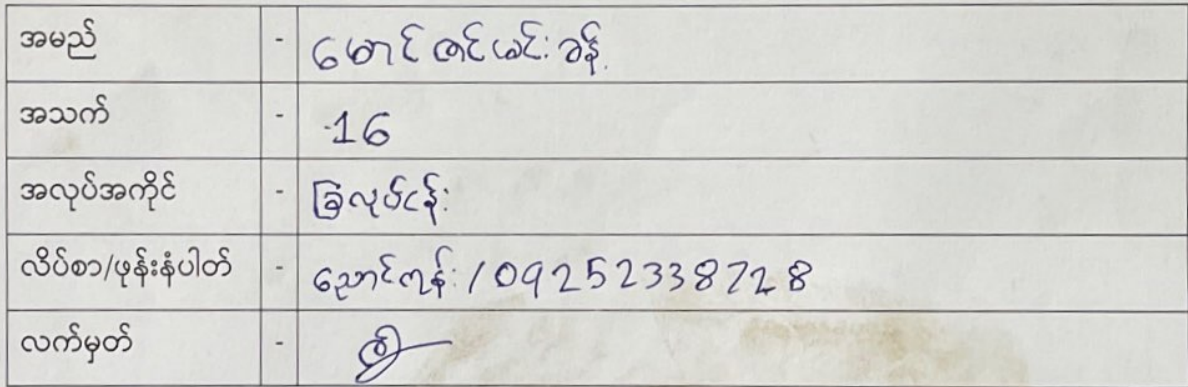 အမည် - မောင်ဇင်ယင်းခန့်
အသက် - 16
အလုပ်အကိုင် - ခြံလုပ်ငန်း
လိပ်စာ/ဖုန်းနံပါတ် - ညောင်ကုန်း / 09252338728
လက်မှတ် -